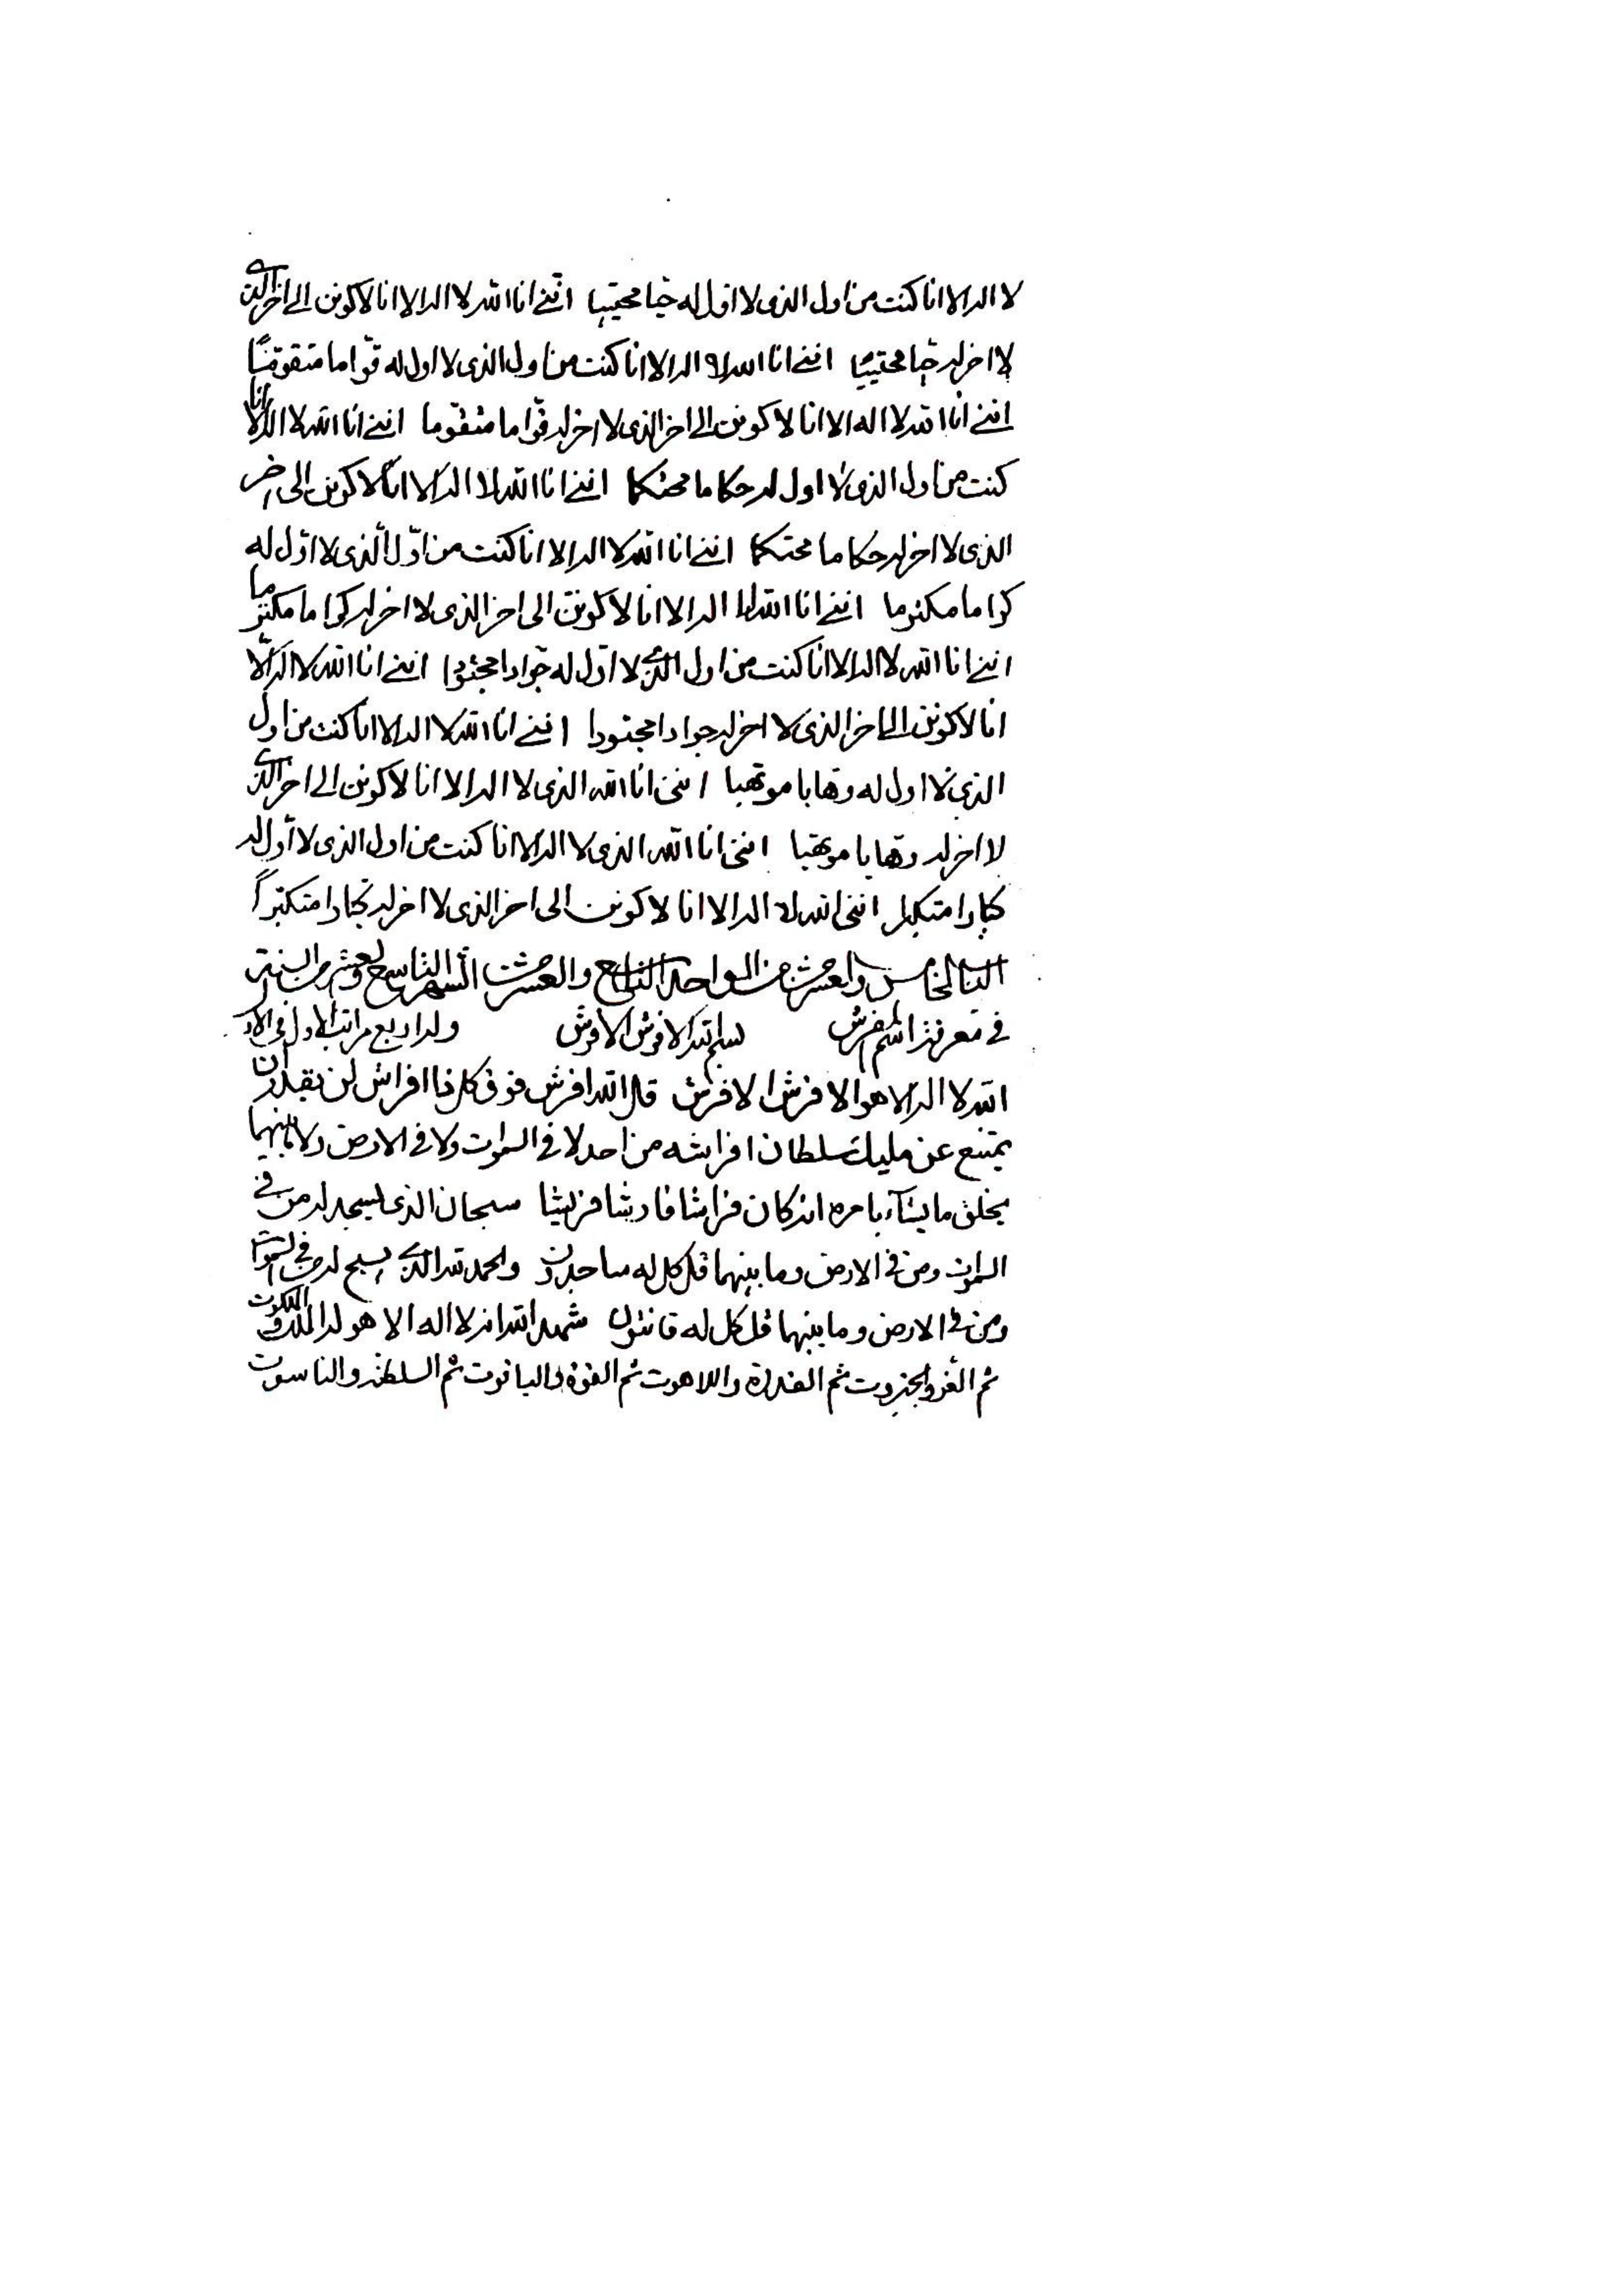 لا اله الا انا كنت من اول الذى لا اول له حيا محتييا اننى انا الله لا اله الا انا لاكونن الى اخر الذى
لا اخر له حيا محتييا اننى انا الله لا اله الا انا كنت من اول الذى لا اول له قواما متقوما
اننى انا الله لا اله الا انا لاكونن الى اخر الذى لا اخر له قواما متقوما اننى انا الله لا اله الا انا
كنت من اول الذى لا اول له حكاما محتكما اننى انا الله لا اله الا انا لاكونن الى اخر
الذى لا اخر له حكاما محتكما اننى انا الله لا اله الا انا كنت من اول الذى لا اول له
كراما مكتوما اننى انا الله لا اله الا انا لاكونن الى اخر الذى لا اخر له كراما مكترما
اننى انا الله لا اله الا انا كنت من اول الذى لا اول له جوادا مجتودا اننى انا الله لا اله الا
انا لاكونن الى اخر الذى لا اخر له جوادا مجتودا اننى انا الله لا اله الا انا كنت من اول
الذى لا اول له وهابا موتهبا اننى انا الله الذى لا اله الا انا لاكونن الى اخر الذى
لا اخر له وهابا موتهبا اننى انا الله الذى لا اله الا انا كنت من اول الذى لا اول له
كبارا متكبرا اننى الله لا اله الا انا لاكونن الى اخر الذى لا اخر له كبارا متكبرا
الباب الخامس والعشر من الواحد التاسع والعشر الشهر التاسع والعشر من السنة
فى معرفة اسم المفرش بسم الله الافرش الافرش وله اربع مراتب الاول فى الاول
الله لا اله الا هو الافرش الافرش قل الله افرش فوق كل ذا افراش لن يقدر ان
يمتنع عن مليك سلطان افراشه من احد لا فى السموات ولا فى الارض ولا ما بينهما
يخلق ما يشآء بامره انه كان فراشا فارشا فريشا سبحان الذى يسجد له من فى
السموات ومن فى الارض وما بينهما قل كل له ساجدون والحمد لله الذى يسبح له من فى السموات
ومن فى الارض وما بينهما قل كل له قانتون شهد الله انه لا اله الا هو له الملك والملكوت
ثم العز والجبروت ثم القدرة واللاهوت ثم القوة والياقوت ثم السلطنة والناسوت